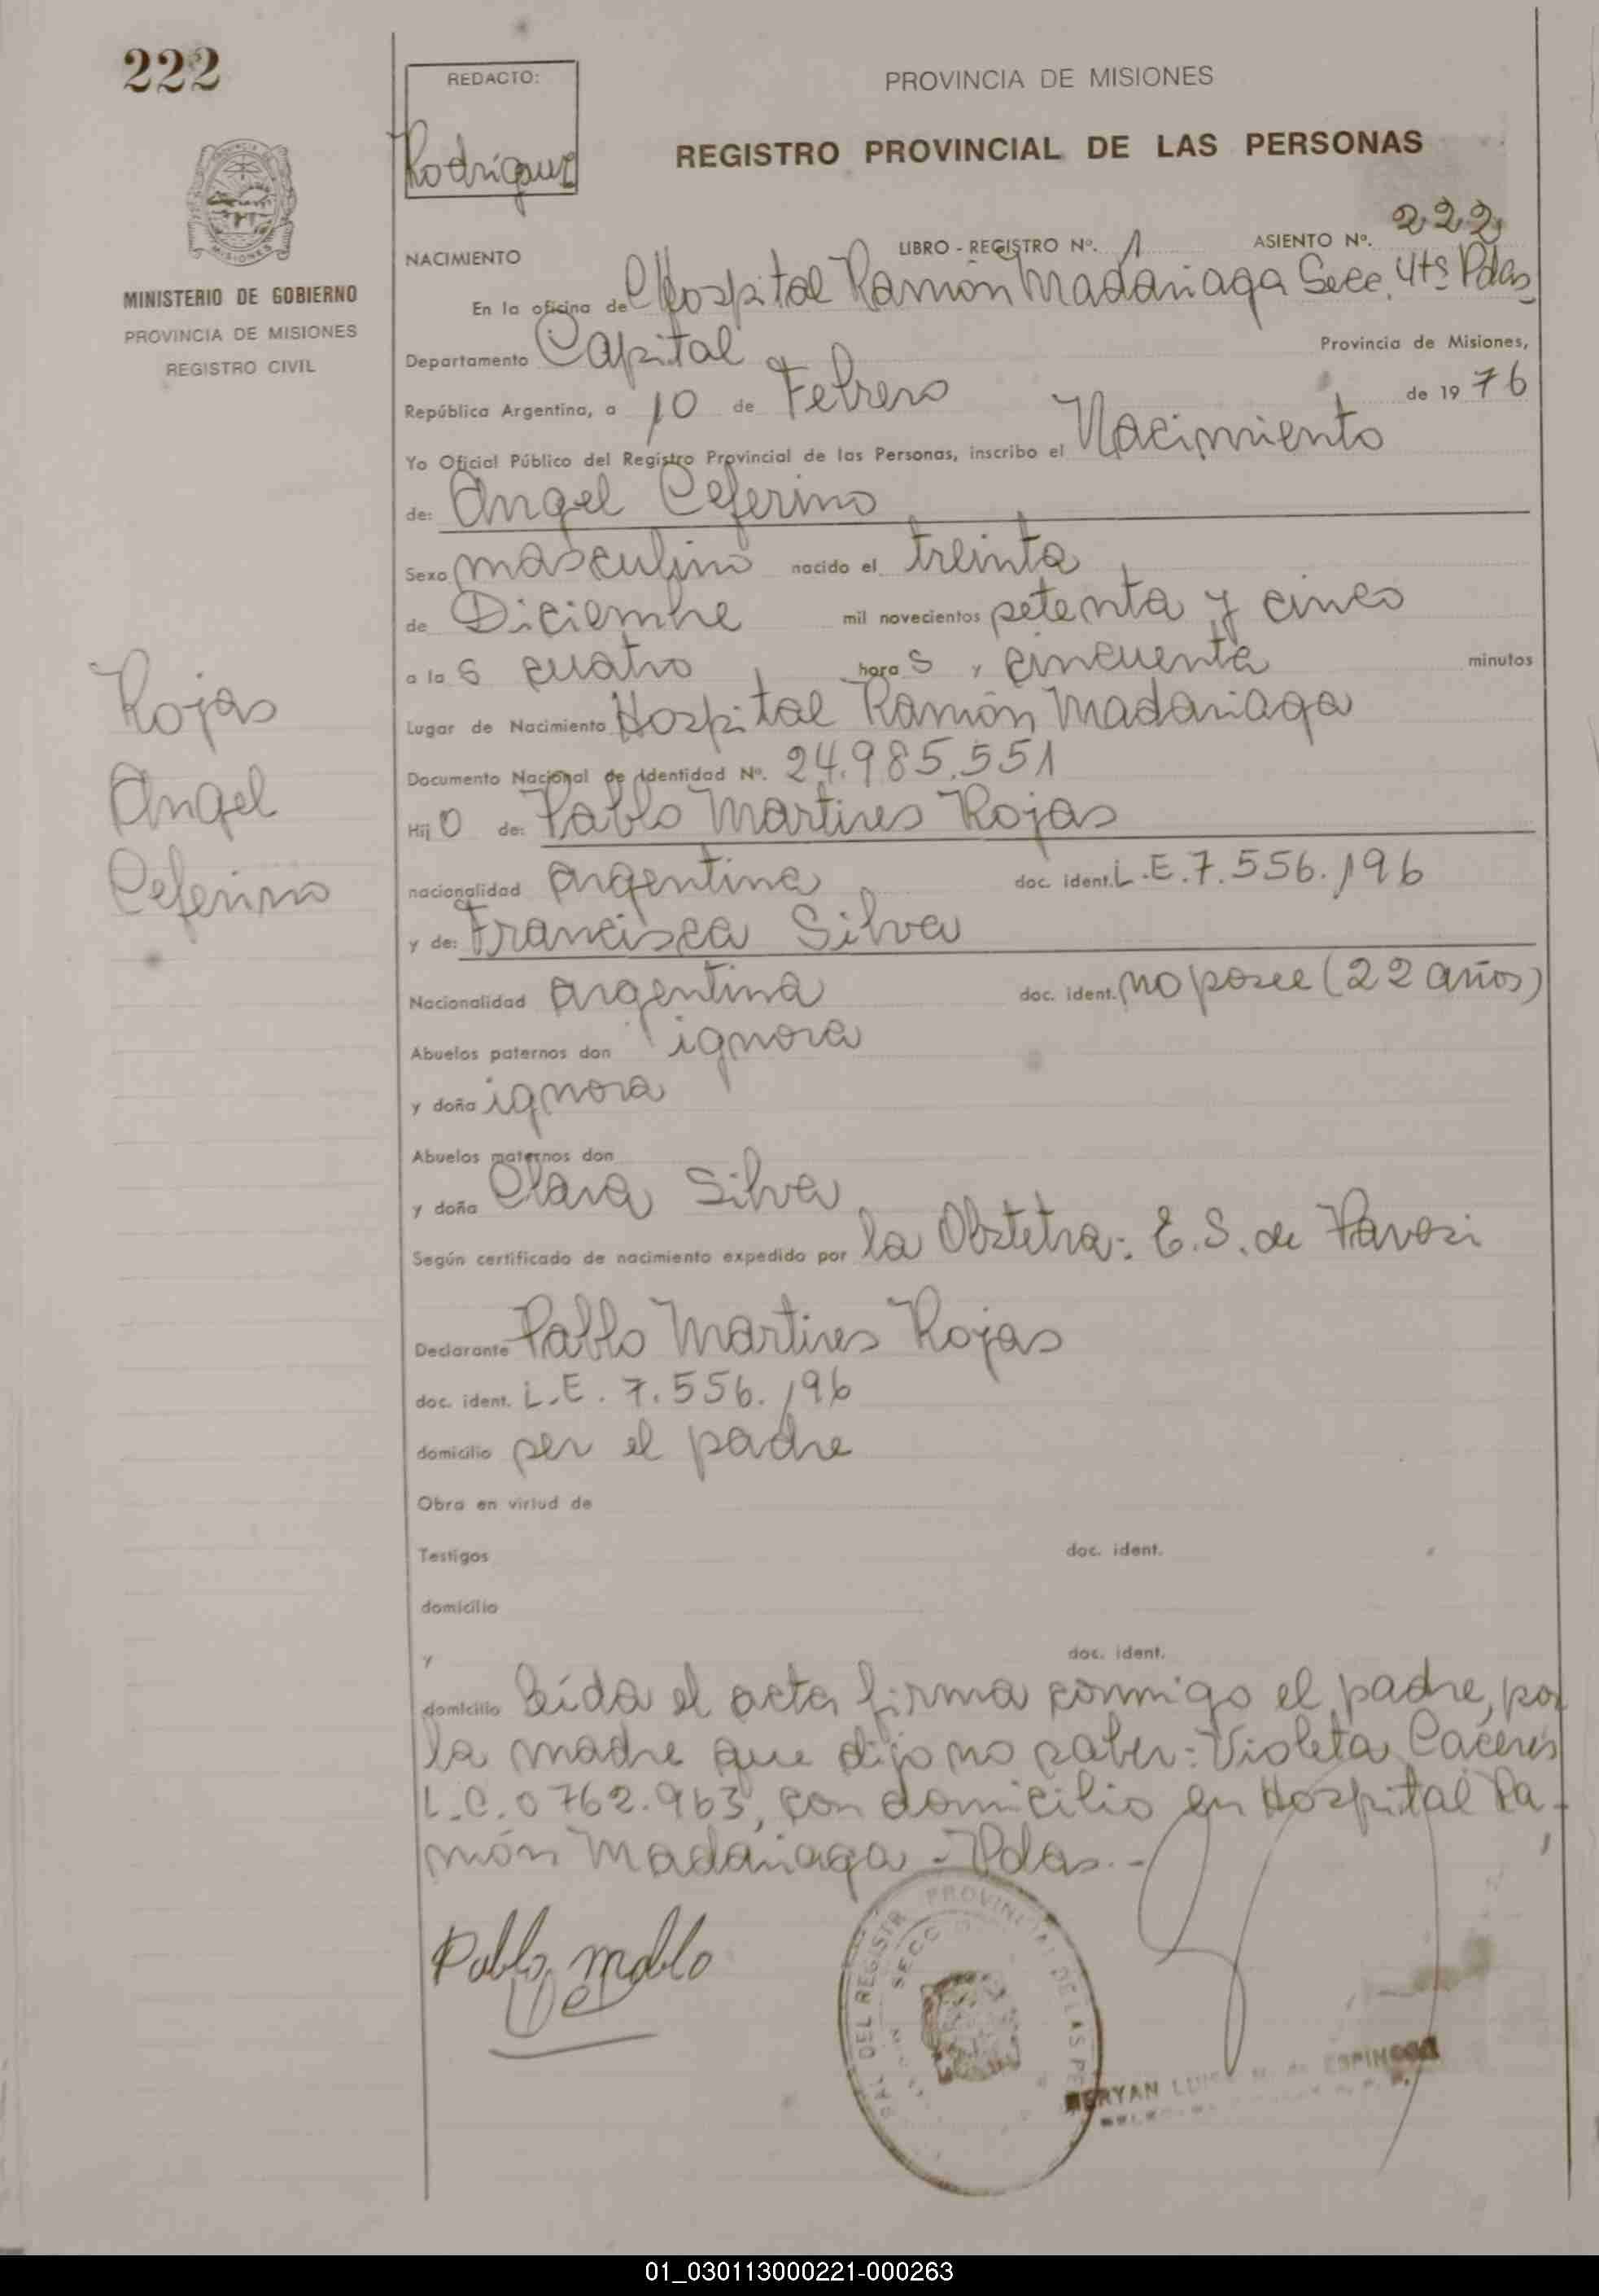 222
REDACTO:
Rodriguez
PROVINCIA DE MISIONES
REGISTRO PROVINCIAL DE LAS PERSONAS
MINISTERIO DE GOBIERNO
PROVINCIA DE MISIONES
REGISTRO CIVIL
NACIMIENTO LIBRO - REGISTRO Nº. 1 ASIENTO Nº. 222
En la oficina del Hospital Ramón Madariaga Secc. 4ta Pdas
Departamento Capital Provincia de Misiones,
República Argentina, a 10 de Febrero de 1976
Yo Oficial Público del Registro Provincial de las Personas, inscribo el Nacimiento
de: Angel Ceferino
Sexo masculino nacido el treinta
de Diciembre mil novecientos setenta y cinco
a las cuatro horas y cincuenta minutos
Lugar de Nacimiento Hospital Ramón Madariaga
Documento Nacional de Identidad Nº. 24.985.551
Hijo de: Pablo Martires Rojas
nacionalidad argentina doc. ident. L.E.7.556.196
y de: Francisca Silva
Nacionalidad argentina doc. ident. no posee (22 años)
Abuelos paternos don ignora
y doña ignora
Abuelos maternos don
y doña Clara Silva
Según certificado de nacimiento expedido por la Obstetra: E.S. de
Declarante Pablo Martires Rojas
doc. ident. L.E. 7.556.196
domicilio ser el padre
Obra en virtud de
Testigos doc. ident.
domicilio
y doc. ident.
domicilio Leída el acta firma conmigo el padre, por
la madre que dijo no saber: Violeta Caceres
L.C. 0762.963, con domicilio en Hospital Ra-
món Madariaga - Pdas.-
Rojas
Angel
Ceferino
Pablo
DEL REGISTR PROVINCIAL DE LAS PE
SECC
ERYAN LUISA de ESPINOSA
01_030113000221-000263